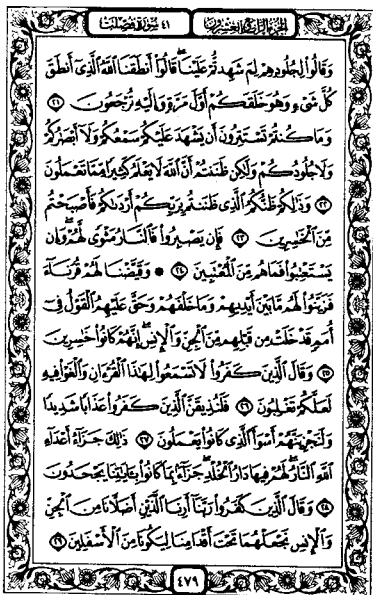 الجزء الرابع والعشرون ٤١ سورة فصلت
وَقَالُوا۟ لِجُلُودِهِمْ لِمَ شَهِدتُّمْ عَلَيْنَا ۖ قَالُوٓا۟ أَنطَقَنَا ٱللَّهُ ٱلَّذِىٓ أَنطَقَ
كُلَّ شَىْءٍ وَهُوَ خَلَقَكُمْ أَوَّلَ مَرَّةٍ وَإِلَيْهِ تُرْجَعُونَ ٢١
وَمَا كُنتُمْ تَسْتَتِرُونَ أَن يَشْهَدَ عَلَيْكُمْ سَمْعُكُمْ وَلَآ أَبْصَـٰرُكُمْ
وَلَا جُلُودُكُمْ وَلَـٰكِن ظَنَنتُمْ أَنَّ ٱللَّهَ لَا يَعْلَمُ كَثِيرًا مِّمَّا تَعْمَلُونَ
٢٢ وَذَٰلِكُمْ ظَنُّكُمُ ٱلَّذِى ظَنَنتُم بِرَبِّكُمْ أَرْدَىٰكُمْ فَأَصْبَحْتُم
مِّنَ ٱلْخَـٰسِرِينَ ٢٣ فَإِن يَصْبِرُوا۟ فَٱلنَّارُ مَثْوًى لَّهُمْ ۖ وَإِن
يَسْتَعْتِبُوا۟ فَمَا هُم مِّنَ ٱلْمُعْتَبِينَ ٢٤ ۞ وَقَيَّضْنَا لَهُمْ قُرَنَآءَ
فَزَيَّنُوا۟ لَهُم مَّا بَيْنَ أَيْدِيهِمْ وَمَا خَلْفَهُمْ وَحَقَّ عَلَيْهِمُ ٱلْقَوْلُ فِىٓ
أُمَمٍ قَدْ خَلَتْ مِن قَبْلِهِم مِّنَ ٱلْجِنِّ وَٱلْإِنسِ ۖ إِنَّهُمْ كَانُوا۟ خَـٰسِرِينَ
٢٥ وَقَالَ ٱلَّذِينَ كَفَرُوا۟ لَا تَسْمَعُوا۟ لِهَـٰذَا ٱلْقُرْءَانِ وَٱلْغَوْا۟ فِيهِ
لَعَلَّكُمْ تَغْلِبُونَ ٢٦ فَلَنُذِيقَنَّ ٱلَّذِينَ كَفَرُوا۟ عَذَابًا شَدِيدًا
وَلَنَجْزِيَنَّهُمْ أَسْوَأَ ٱلَّذِى كَانُوا۟ يَعْمَلُونَ ٢٧ ذَٰلِكَ جَزَآءُ أَعْدَآءِ
ٱللَّهِ ٱلنَّارُ ۖ لَهُمْ فِيهَا دَارُ ٱلْخُلْدِ ۖ جَزَآءًۢ بِمَا كَانُوا۟ بِـَٔايَـٰتِنَا يَجْحَدُونَ
٢٨ وَقَالَ ٱلَّذِينَ كَفَرُوا۟ رَبَّنَآ أَرِنَا ٱلَّذَيْنِ أَضَلَّانَا مِنَ ٱلْجِنِّ
وَٱلْإِنسِ نَجْعَلْهُمَا تَحْتَ أَقْدَامِنَا لِيَكُونَا مِنَ ٱلْأَسْفَلِينَ ٢٩
٤٧٩